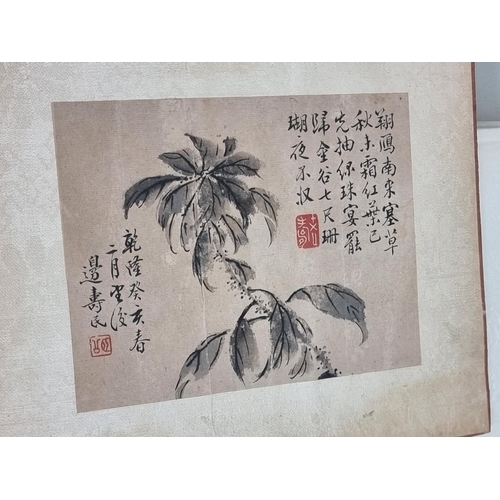 翔鴈南來塞草
秋未霜紅葉已
先抽綠珠宴罷
歸金谷七尺珊
瑚夜不收
乾隆癸亥春
二月望後
邊壽民